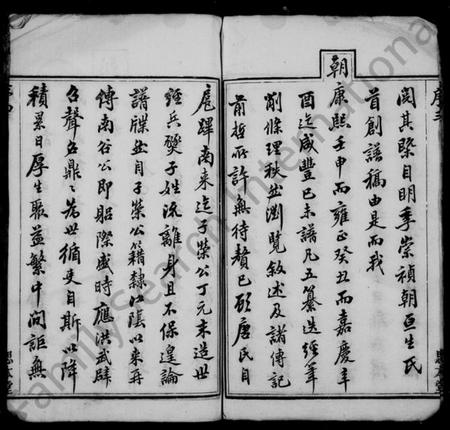 閱其槩目明季崇禎朝亘生氏
首創譜稿由是而我
朝康熙壬申而雍正癸丑而嘉慶辛
酉迄咸豐己未譜凡五纂迭經筆
削條理秩然瀏覽敘述及諸傳記
前哲所許無待贅已顧唐氏自
扈蹕南來迄子榮公丁元末造世
經兵燹子姓流離身且不保遑論
譜牒然自子榮公籍隸江陰以來再
傳南谷公即躬際盛時應洪武辟
召聲名鼎鼎為世循吏自斯以降
積累日厚生聚益繁中間詎無
FamilySearch International